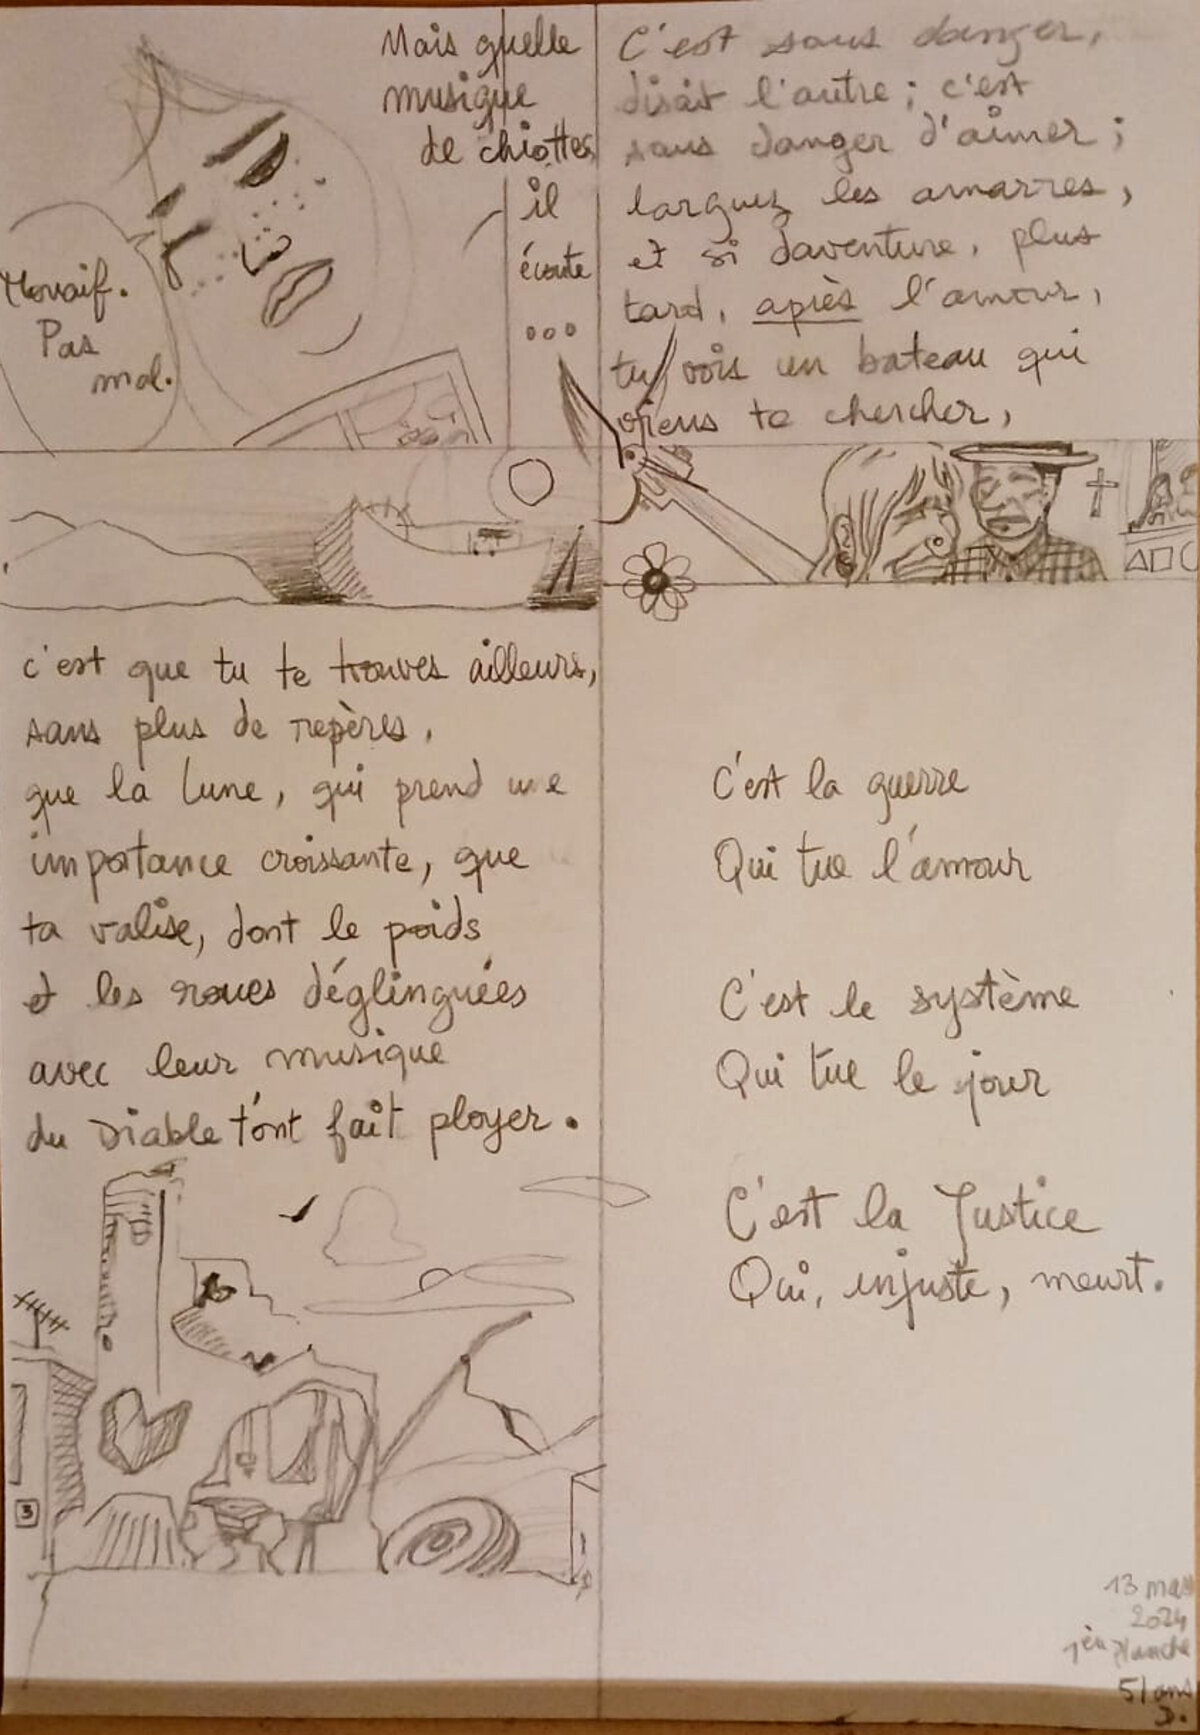 Mais quelle
musique
de chiottes
il
écoute
...
Mouaif.
Pas
mal.
C'est sans danger,
disait l'autre ; c'est
sans danger d'aimer ;
larguez les amarres,
et si d'aventure, plus
tard, après l'amour,
tu vois un bateau qui
viens te chercher,
c'est que tu te trouves ailleurs,
sans plus de repères,
que la Lune, qui prend une
importance croissante, que
ta valise, dont le poids
et les roues déglinguées
avec leur musique
du Diable t'ont fait ployer.
3
C'est la guerre
Qui tue l'amour
C'est le système
Qui tue le jour
C'est la Justice
Qui, injuste, meurt.
13 mars
2024
planche
51 ans
D.